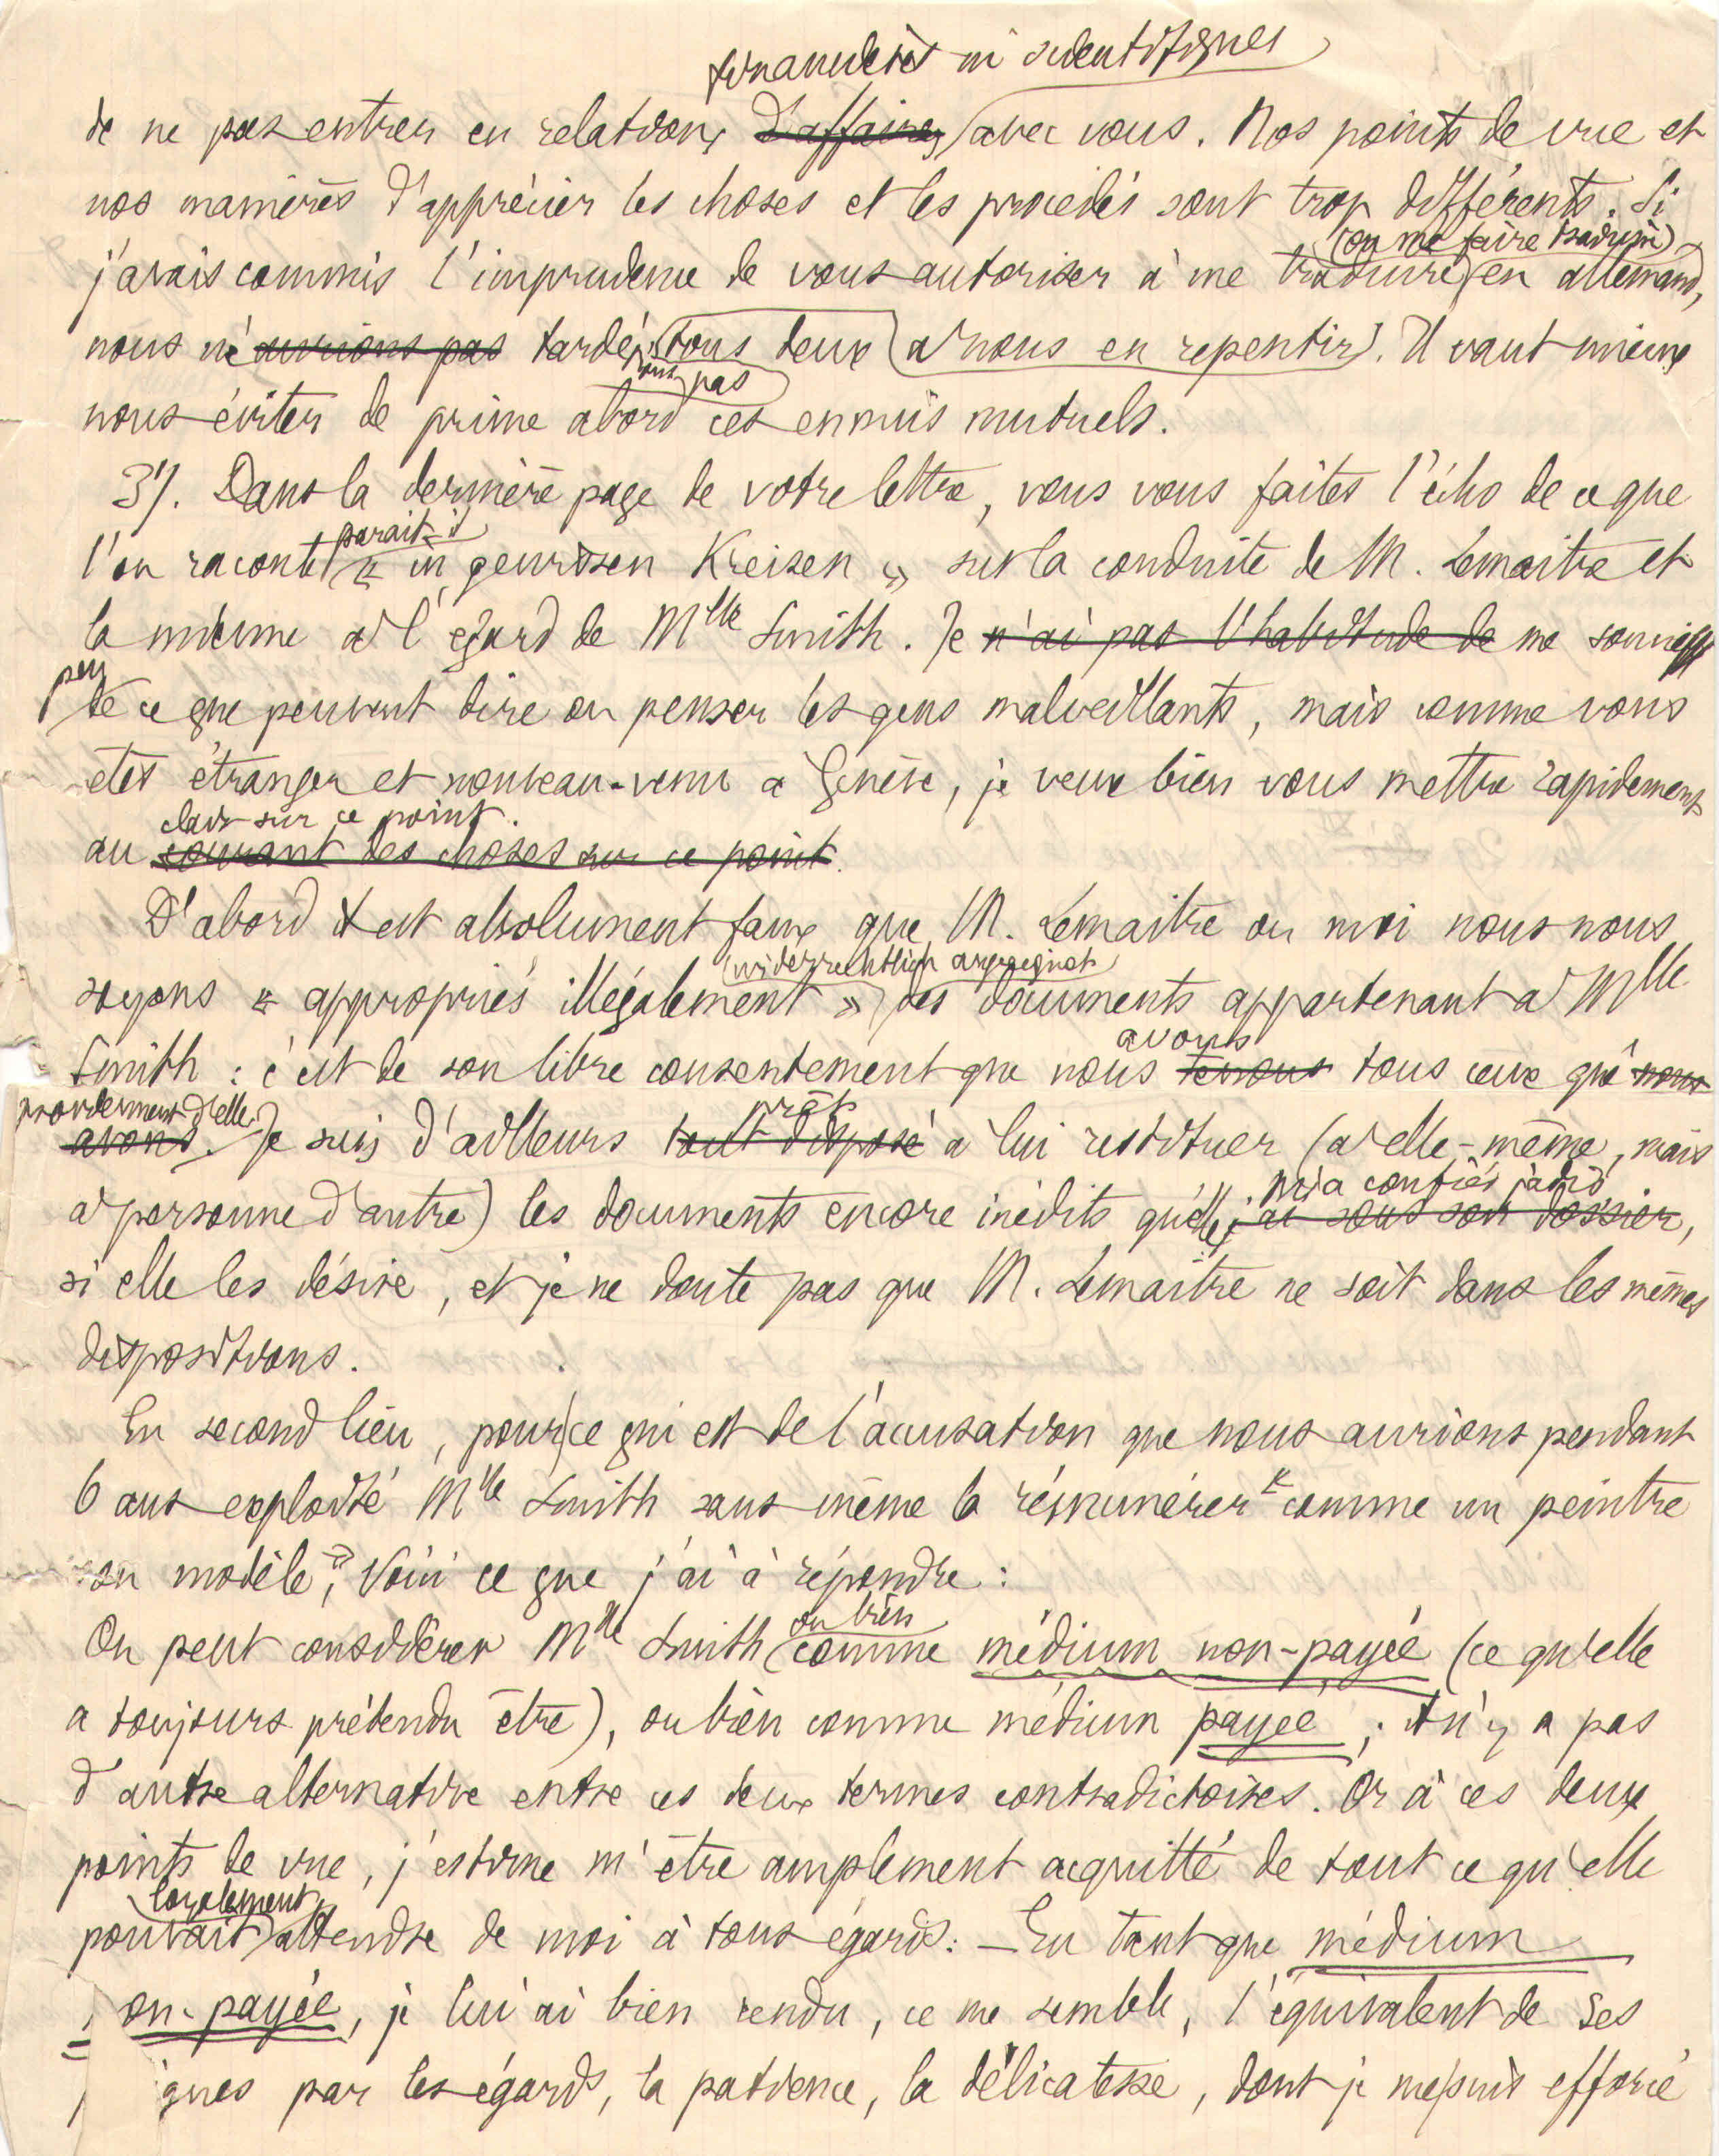 financières ni scientifiques
de ne pas entrer en relations d'affaires avec vous. Nos points de vue et
nos manières d'apprécier les choses et les procédés sont trop différents. Si
(ou me faire traduire)
j'avais commis l'imprudence de vous autoriser à me traduire en allemand,
nous n'aurions pas tardé tous deux à nous en repentir. Il vaut mieux
pas
nous éviter de prime abord ces ennuis mutuels.
3°/. Dans la dernière page de votre lettre, vous vous faites l'écho de ce que
parait-il
l'on raconte « in gewissen Kreisen » sur la conduite de M. Lemaitre et
la mienne à l'égard de Mlle Smith. Je n'ai pas l'habitude de me soucier
peu
de ce que peuvent dire ou penser les gens malveillants, mais comme vous
êtes étranger et nouveau-venu à Genève, je veux bien vous mettre rapidement
clair sur ce point.
au courant des choses sur ce point.
D'abord il est absolument faux que M. Lemaitre ou moi nous nous
(widerrechtlich angeeignet)
soyons « appropriés illégalement » des documents appartenant à Mlle
avons
Smith : c'est de son libre consentement que nous tenons tous ceux que nous
proviennent d'elle.
avons. Je suis d'ailleurs tout disposé à lui restituer (à elle-même, mais
prêt
m'a confiés jadis
à personne d'autre) les documents encore inédits qu'elle j'ai sous son dossier,
si elle les désire, et je ne doute pas que M. Lemaitre ne soit dans les mêmes
dispositions.
En second lieu, pour ce qui est de l'accusation que nous aurions pendant
6 ans exploité Mlle Smith sans même la rémunérer « comme un peintre
son modèle », voici ce que j'ai à répondre :
ou bien
On peut considérer Mlle Smith comme médium non-payée (ce qu'elle
a toujours prétendu être), ou bien comme médium payée ; il n'y a pas
d'autre alternative entre ces deux termes contradictoires. Or à ces deux
points de vue, j'estime m'être amplement acquitté de tout ce qu'elle
loyalement
pouvait attendre de moi à tous égards : — En tant que médium
on-payée, je lui ai bien rendu, ce me semble, l'équivalent de ses
gues par les égards, la patience, la délicatesse, dont je me suis efforcé